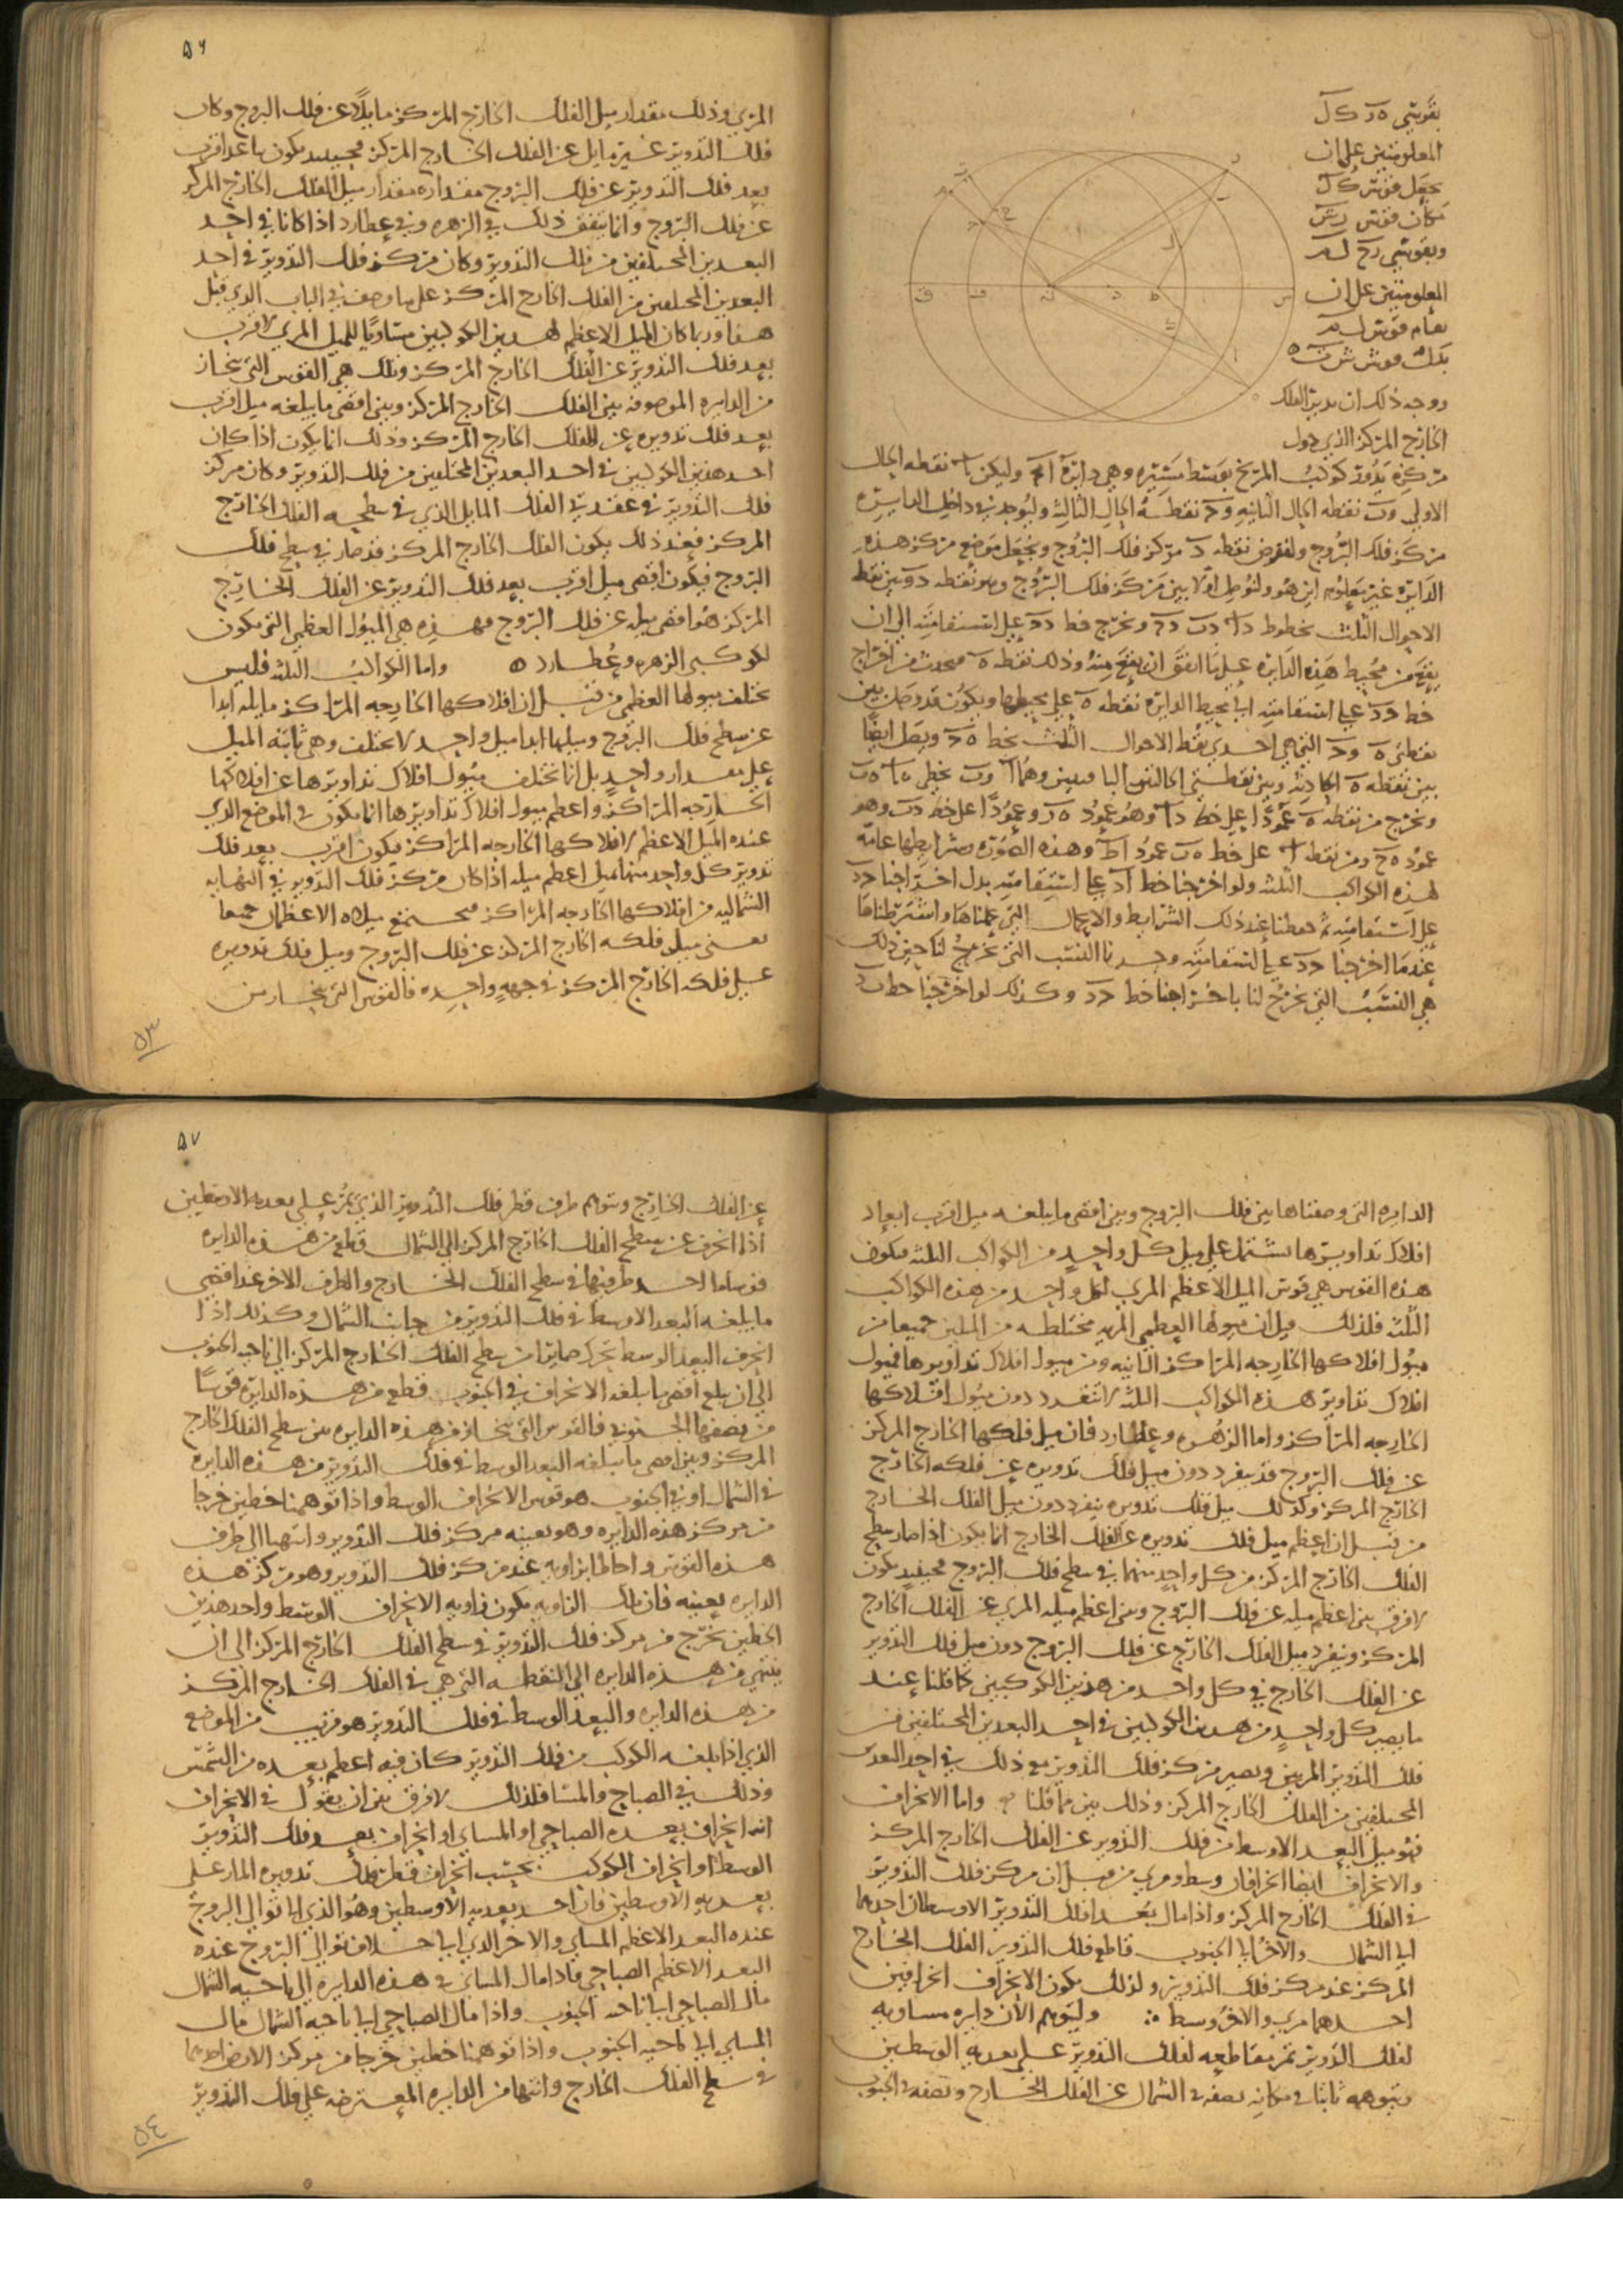 بقوسى ه د ك ل
المعلومتين على ان
نجعل قوس ك ل
مكان قوس
وبقوسى
المعلومتين على ان
تقام قوس
بدل قوس
ووجه ذلك ان يدير الفلك
الخارج المركز الذى حول
مركزه يدور كوكب المريخ بوسط مسيره وهى دائرة ا ب ج وليكن ا نقطه الحال
الاولى و ب نقطه الحال الثانيه و ج نقطه الحال الثالثه وليوجد فى داخل الدايره
مركز فلك البروج ولنفرض نقطه د مركز فلك البروج ونجعل موضع مركز هذه
الدايره غير معلوم اين هو ولنوصل اولا بين مركز فلك البروج وهو نقطه د وبين نقط
الاحوال الثلث بخطوط د ا د ب د ج ونخرج خط ج د على استقامته الى ان
يقع من محيط هذه الدايره على ما اتفق ان يقع منه وذلك نقطه ه فيحدث من اخراج
خط ج د على استقامته الى محيط الدايره نقطه ه على محيطها ويكون قد وصل بين
نقطتى ه و ج التى هى احدى نقط الاحوال الثلث بخط ه ج ويصل ايضا
بين نقطه ه الحادثه وبين نقطتى الحالتين الباقيتين وهما ا و ب بخطى ه ا ه ب
ونخرج من نقطه ه عمودا على خط د ا وهو عمود ه ر وعمودا على خط د ب وهو
عمود ه ح ومن نقطه ا على خط ه ب عمود ا ط وهذه الصورة وشرايطها عامه
لهذه الكواكب الثلثه ولو اخرجنا خط ا د على استقامته بدل اخراجنا ج د
على استقامته ثم حفظنا عند ذلك الشرايط والاعمال التى عملناها واشترطناها
عندما اخرجنا ج د على استقامته وجدنا النسب التى تخرج لنا حين ذلك
هى النسب التى تخرج لنا باخراجنا خط ج د وكذلك لو اخرجنا خط ب د
٥٦
المرى وذلك بمقدار ميل الفلك الخارج المركز مايلا عن فلك البروج وكان
فلك التدوير غير مايل عن الفلك الخارج المركز فحينيذ يكون باعد اقرب
بعد فلك التدوير عن فلك البروج مقداره مقدار ميل الفلك الخارج المركز
عن فلك البروج وانما يتفق ذلك فى الزهره وفى عطارد اذا كانا فى احد
البعدين المختلفين من فلك التدوير وكان مركز فلك التدوير فى احد
البعدين المختلفين من الفلك الخارج المركز على ما وصف فى الباب الذى قبل
هذا وربما كان الميل الاعظم لهذين الكوكبين مساويا للميل المرى لاقرب
بعد فلك التدوير عن الفلك الخارج المركز وتلك هى القوس التى تنحاز
من الدايره الموصوفه بين الفلك الخارج المركز وبين اقصى ما يبلغه ميل اقرب
بعد فلك تدويره عن الفلك الخارج المركز وذلك انما يكون اذا كان
احد هذين الكوكبين فى احد البعدين المختلفين من فلك التدوير وكان مركز
فلك التدوير فى عقدتى الفلك المايل الذى فى سطحه الفلك الخارج
المركز فعند ذلك يكون الفلك الخارج المركز قد صار فى سطح فلك
البروج فيكون اقصى ميل اقرب بعد فلك التدوير عن الفلك الخارج
المركز هو اقصى ميله عن فلك البروج فهذه هى الميول العظمى التى تكون
لكوكبى الزهره وعطارد ه واما الكواكب الثلثه فليس
تختلف ميولها العظمى من قبل ان افلاكها الخارجه المراكز مايله ابدا
عن سطح فلك البروج وميلها ابدا ميل واحد لا يختلف وهى ثابته الميل
على مقدار واحد بل انما تختلف ميول افلاك تداويرها عن افلاكها
الخارجه المراكز واعظم ميول افلاك تداويرها انما يكون فى الموضع الذى
عنده الميل الاعظم لافلاكها الخارجه المراكز فيكون اقرب بعد فلك
تدوير كل واحد منها يميل اعظم ميله اذا كان مركز فلك التدوير فى النهايه
الشماليه من افلاكها الخارجه المراكز فيجتمع ميلاه الاعظمان جميعا
يعنى ميل فلكه الخارج المركز عن فلك البروج وميل فلك تدويره
على فلكه الخارج المركز فى جهه واحده فالقوس التى تنحاز من
٥٣
الدايره التى وصفناها بين فلك البروج وبين اقصى ما يبلغه ميل اقرب ابعاد
افلاك تداويرها تشتمل على ميل كل واحد من الكواكب الثلثه فتكون
هذه القوس هى قوس الميل الاعظم المرى لكل واحد من هذه الكواكب
الثلثه فلذلك قيل ان ميولها العظمى المريه مختلطه من الميلين جميعا من
ميول افلاكها الخارجه المراكز الثانيه ومن ميول افلاك تداويرها فميول
افلاك تداوير هذه الكواكب الثلثه لا تنفرد دون ميول افلاكها
الخارجه المراكز واما الزهره وعطارد فان ميل فلكها الخارج المركز
عن فلك البروج قد ينفرد دون ميل فلك تدويره عن فلكه الخارج
الخارج المركز وكذلك ميل فلك تدويره ينفرد دون ميل الفلك الخارج
من قبل ان اعظم ميل فلك تدويره عن الفلك الخارج انما يكون اذا صار سطح
الفلك الخارج المركز من كل واحد منهما فى سطح فلك البروج فحينيذ يكون
لا فرق بين اعظم ميله عن فلك البروج وبين اعظم ميله المرى عن الفلك الخارج
المركز وينفرد ميل الفلك الخارج عن فلك البروج دون ميل فلك التدوير
عن الفلك الخارج فى كل واحد من هذين الكوكبين كما قلنا عند
ما يصير كل واحد من هذين الكوكبين فى احد البعدين المختلفين من
فلك التدوير المريين ويصير مركز فلك التدوير مع ذلك فى احد البعدين
المختلفين من الفلك الخارج المركز وذلك بين مما قلنا ه واما الانحراف
فهو ميل البعد الاوسط من فلك التدوير عن الفلك الخارج المركز
والانحراف ايضا انحرافان وسط ومرى من قبل ان مركز فلك التدوير
فى الفلك الخارج المركز واذا مال بعدا فلك التدوير الاوسطان احدهما
الى الشمال والاخر الى الجنوب قاطع فلك التدوير الفلك الخارج
المركز عند مركز فلك التدوير ولذلك يكون الانحراف انحرافين
احدهما مرى والاخر وسط ∴ وليتوهم الان دايره مساويه
لفلك التدوير تمر مقاطعه لفلك التدوير على بعديه الوسطين
ويتوهمه ثابتا فى مكانه نصفه فى الشمال عن الفلك الخارج ونصفه فى الجنوب
٥٧
عن الفلك الخارج ويتوهم طرف قطر فلك التدوير الذى يمر على بعديه الاوسطين
اذا انحرف عن سطح الفلك الخارج المركز الى الشمال قطع من هذه الدايره
قوسا ما احد طرفيها فى سطح الفلك الخارج والطرف الاخر عند اقصى
ما يبلغه البعد الاوسط فى فلك التدوير من جانب الشمال وكذلك اذا
انحرف البعد الوسط يتحرك صايرا من سطح الفلك الخارج المركز الى ناحيه الجنوب
الى ان يبلغ اقصى ما يبلغه الانحراف فى الجنوب قطع من هذه الدايره قوسا
من نصفها الجنوبى فالقوس التى تنحاز من هذه الدايره بين سطح الفلك الخارج
المركز وبين اقصى ما يبلغه البعد الوسط فى فلك التدوير من هذه الدايره
فى الشمال او فى الجنوب هو قوس الانحراف الوسط واذا توهمنا خطين خرجا
من مركز هذه الدايره وهو بعينه مركز فلك التدوير وانتهيا الى طرفى
هذه القوس واحاطا بزاويه عند مركز فلك التدوير وهو مركز هذه
الدايره بعينه فان تلك الزاويه تكون زاويه الانحراف الوسط واحد هذين
الخطين يخرج من مركز فلك التدوير فى سطح الفلك الخارج المركز الى ان
ينتهى من هذه الدايره الى النقطه التى هى فى الفلك الخارج المركز
من هذه الدايره والبعد الوسط فى فلك التدوير هو قريب من الموضع
الذى اذا بلغه الكوكب من فلك التدوير كان فيه اعظم بعده من الشمس
وذلك فى الصباح والمسا فلذلك لا فرق بين ان يقول فى الانحراف
انه انحراف بعده الصباحى او المساى او انحراف بعد فلك التدوير
الوسط او انحراف الكوكب بحسب انحراف قطر فلك تدويره المار على
بعديه الاوسطين فان احد بعديه الاوسطين وهو الذى الى توالى البروج
عنده البعد الاعظم المساى والاخر الذى الى خلاف توالى البروج عنده
البعد الاعظم الصباحى فاذا مال المساى فى هذه الدايره الى ناحيه الشمال
مال الصباحى الى ناحيه الجنوب واذا مال الصباحى الى ناحيه الشمال مال
المساى الى ناحيه الجنوب واذا توهمنا خطين خرجا من مركز الارض احدهما
فى سطح الفلك الخارج وانتهيا من الدايره المعترضه على فلك التدوير
٥٤